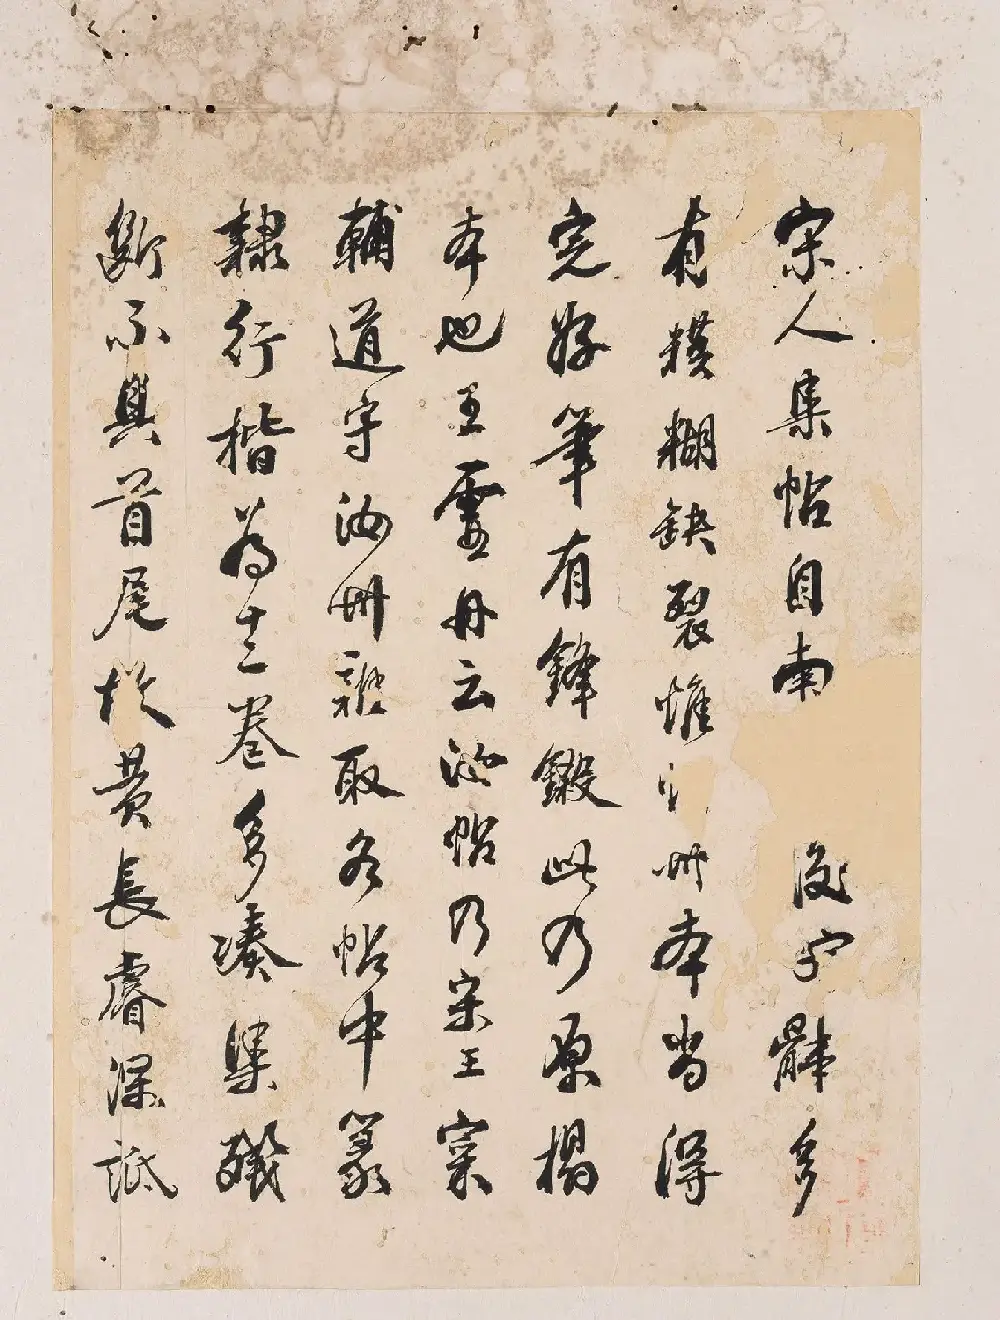 宋人集帖自南後字體多
有模糊缺裂惟州本尚得
完好筆有鋒鍛此乃原榻
本也王虛舟云汝帖乃宋王寀
輔道守汝州雜取各帖中篆
隸行楷為十二卷多湊集殘
斷不具首尾故黃長睿深詆